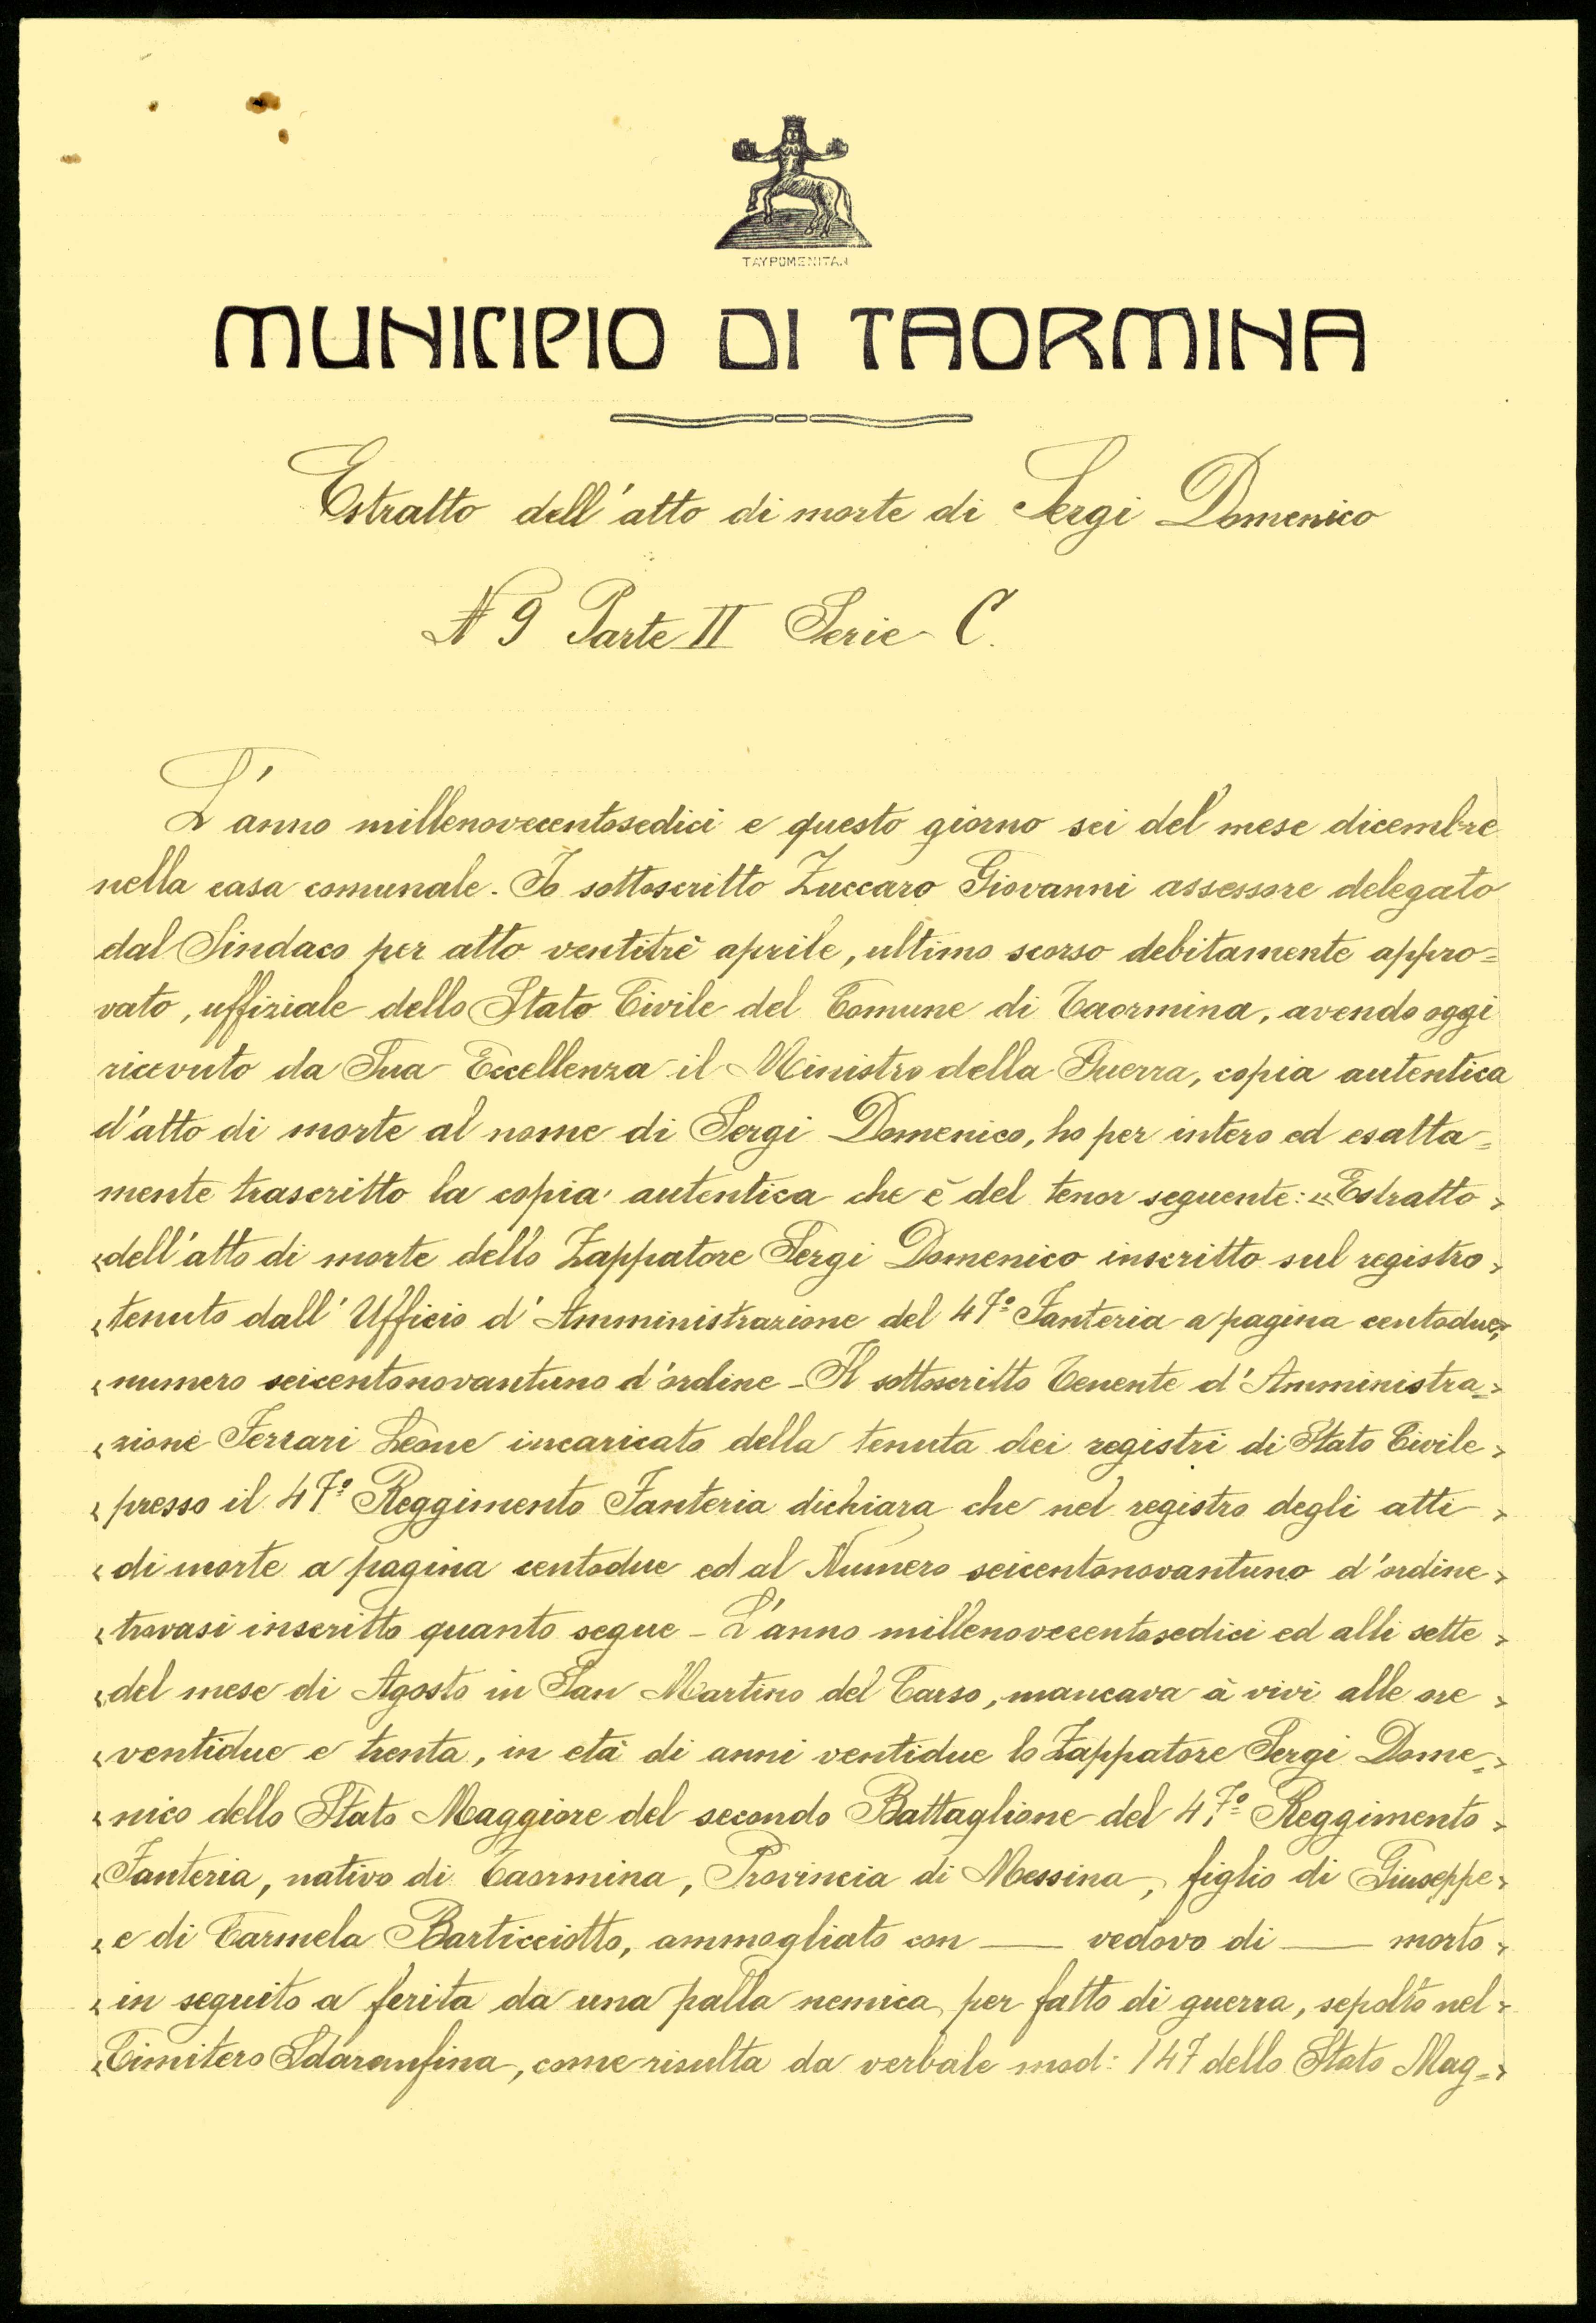 TAYPOMENITAN
MUNICIPIO DI TAORMINA
Estratto dell'atto di morte di Sergi Domenico
N 9 Parte II Serie C.
L'anno millenovecentosedici e questo giorno sei del mese dicembre
nella casa comunale. Io sottoscritto Zuccaro Giovanni assessore delegato
dal Sindaco per atto ventitrè aprile, ultimo scorso debitamente appro=
vato, uffiziale dello Stato Civile del Comune di Taormina, avendo oggi
ricevuto da Sua Eccellenza il Ministro della Guerra, copia autentica
d'atto di morte al nome di Sergi Domenico, ho per intero ed esatta=
mente trascritto la copia autentica che è del tenor seguente: "Estratto >
< dell'atto di morte dello Zappatore Sergi Domenico inscritto sul registro >
< tenuto dall'Ufficio d'Amministrazione del 47º Fanteria a pagina centodue, >
< numero seicentonovantuno d'ordine - Il sottoscritto Tenente d'Amministra= >
< zione Ferrari Leone incaricato della tenuta dei registri di Stato Civile >
< presso il 47º Reggimento Fanteria dichiara che nel registro degli atti >
< di morte a pagina centodue ed al Numero seicentonovantuno d'ordine >
< trovasi inscritto quanto segue - L'anno millenovecentosedici ed alli sette >
< del mese di Agosto in San Martino del Carso, mancava à vivi alle ore >
< ventidue e trenta, in età di anni ventidue lo Zappatore Sergi Dome= >
< nico dello Stato Maggiore del secondo Battaglione del 47º Reggimento >
< Fanteria, nativo di Taormina, Provincia di Messina, figlio di Giuseppe >
< e di Carmela Barticciotto, ammogliato con — vedovo di — morto >
< in seguito a ferita da una palla nemica per fatto di guerra, sepolto nel >
< Cimitero, come risulta da verbale mod: 147 dello Stato Mag= >